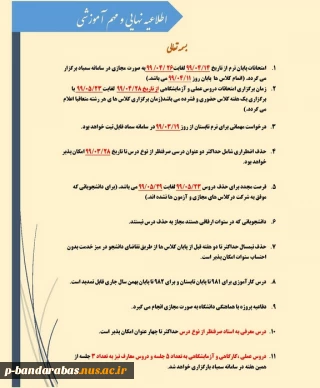 اطلاعیه نهایی و مهم آموزشی
بسمه تعالی
۱. امتحانات پایان ترم از تاریخ ۹۹/۰۴/۱۴ لغایت ۹۹/۰۴/۲۶ به صورت مجازی در سامانه سمیاد برگزار
می گردد. (اتمام کلاس ها پایان روز ۹۹/۰۴/۱۱ می باشد.)
۲. زمان برگزاری امتحانات دروس عملی و آزمایشگاهی از تاریخ ۹۹/۰۴/۲۸ لغایت ۹۹/۰۵/۲۳ با
برگزاری یک هفته کلاس حضوری و فشرده می باشد(زمان برگزاری کلاس ها ی هر رشته متعاقبا اعلام
می گردد.)
۳. درخواست مهمانی برای ترم تابستان از روز ۹۹/۰۳/۱۹ در سامانه سماد قابل ثبت خواهد بود.
۴. حذف اضطراری شامل حداکثر دو عنوان درسی صرفنظر از نوع درس تا تاریخ ۹۹/۰۳/۲۸ امکان پذیر
خواهد بود.
۵. فرصت مجدد برای حذف دروس ۹۹/۰۵/۲۳ لغایت ۹۹/۰۵/۲۹ می باشد. (برای دانشجویانی که
موفق به شرکت در کلاس های مجازی و آزمون ها نشده اند.)
۶. دانشجویانی که در سنوات ارفاقی هستند مجاز به حذف درس نیستند.
۷. حذف نیمسال حداکثر تا دو هفته قبل از پایان کلاس ها از طریق تقاضای دانشجو در میز خدمت بدون
احتساب سنوات امکان پذیر است.
۸. درس کارآموزی برای ۹۸۱ تا پایان تابستان و برای ۹۸۲ تا پایان بهمن سال جاری قابل تمدید است.
۹. دفاعیه پروژه با هماهنگی دانشگاه به صورت مجازی انجام می گیرد.
۱۰. درس معرفی به استاد صرفنظر از نوع درس حداکثر تا چهار عنوان امکان پذیر است.
۱۱. دروس عملی ،کارگاهی و آزمایشگاهی به تعداد ۵ جلسه و دروس معارف نیز به تعداد ۳ جلسه از
همین هفته در سامانه سمیاد بارگزاری خواهد شد.
p-bandarabas.nus.ac.ir